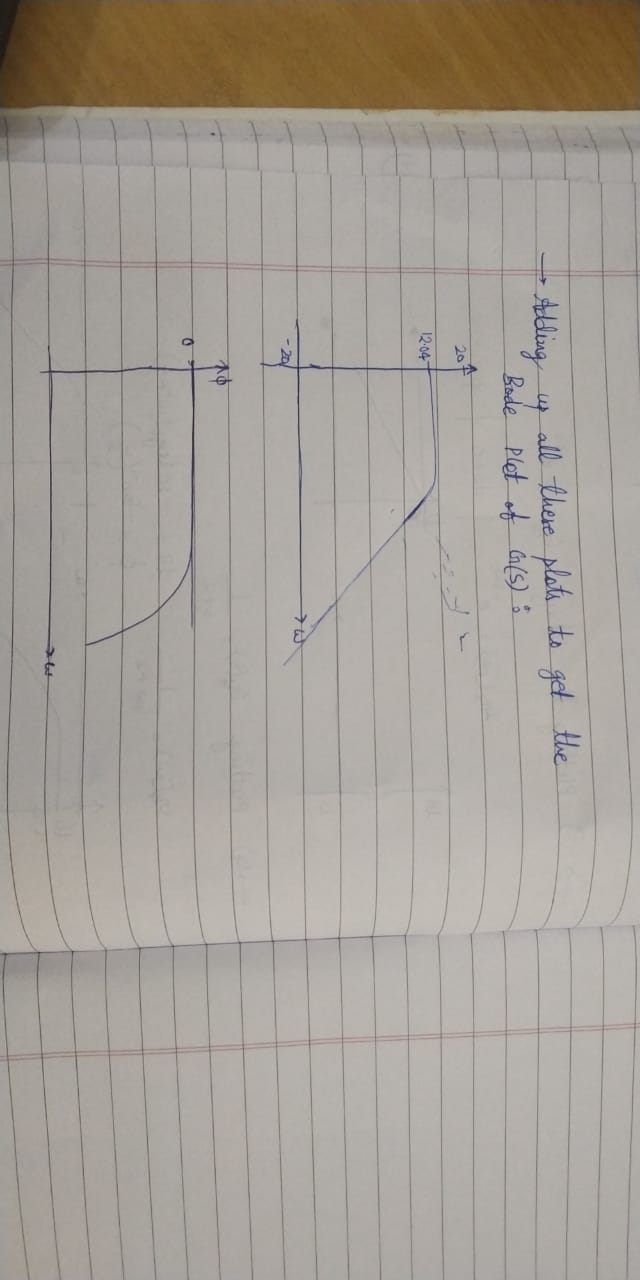 → Adding up all these plots to get the
Bode Plot of G(s) :
20
12.04
-20
→ ω
ϕ
0
→ ω